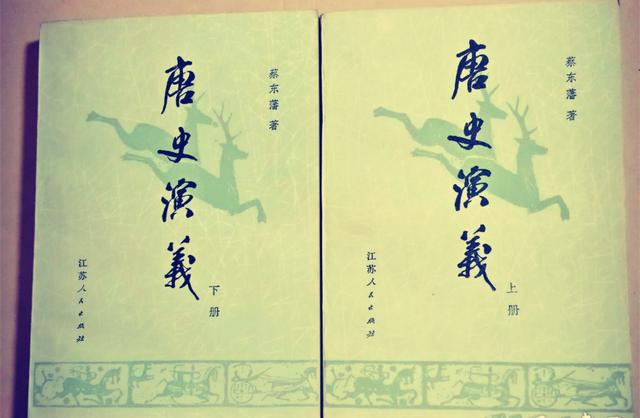 蔡东藩 著
唐史演義
下册
江苏人民出版社
蔡东藩 著
唐史演義
上册
江苏人民出版社